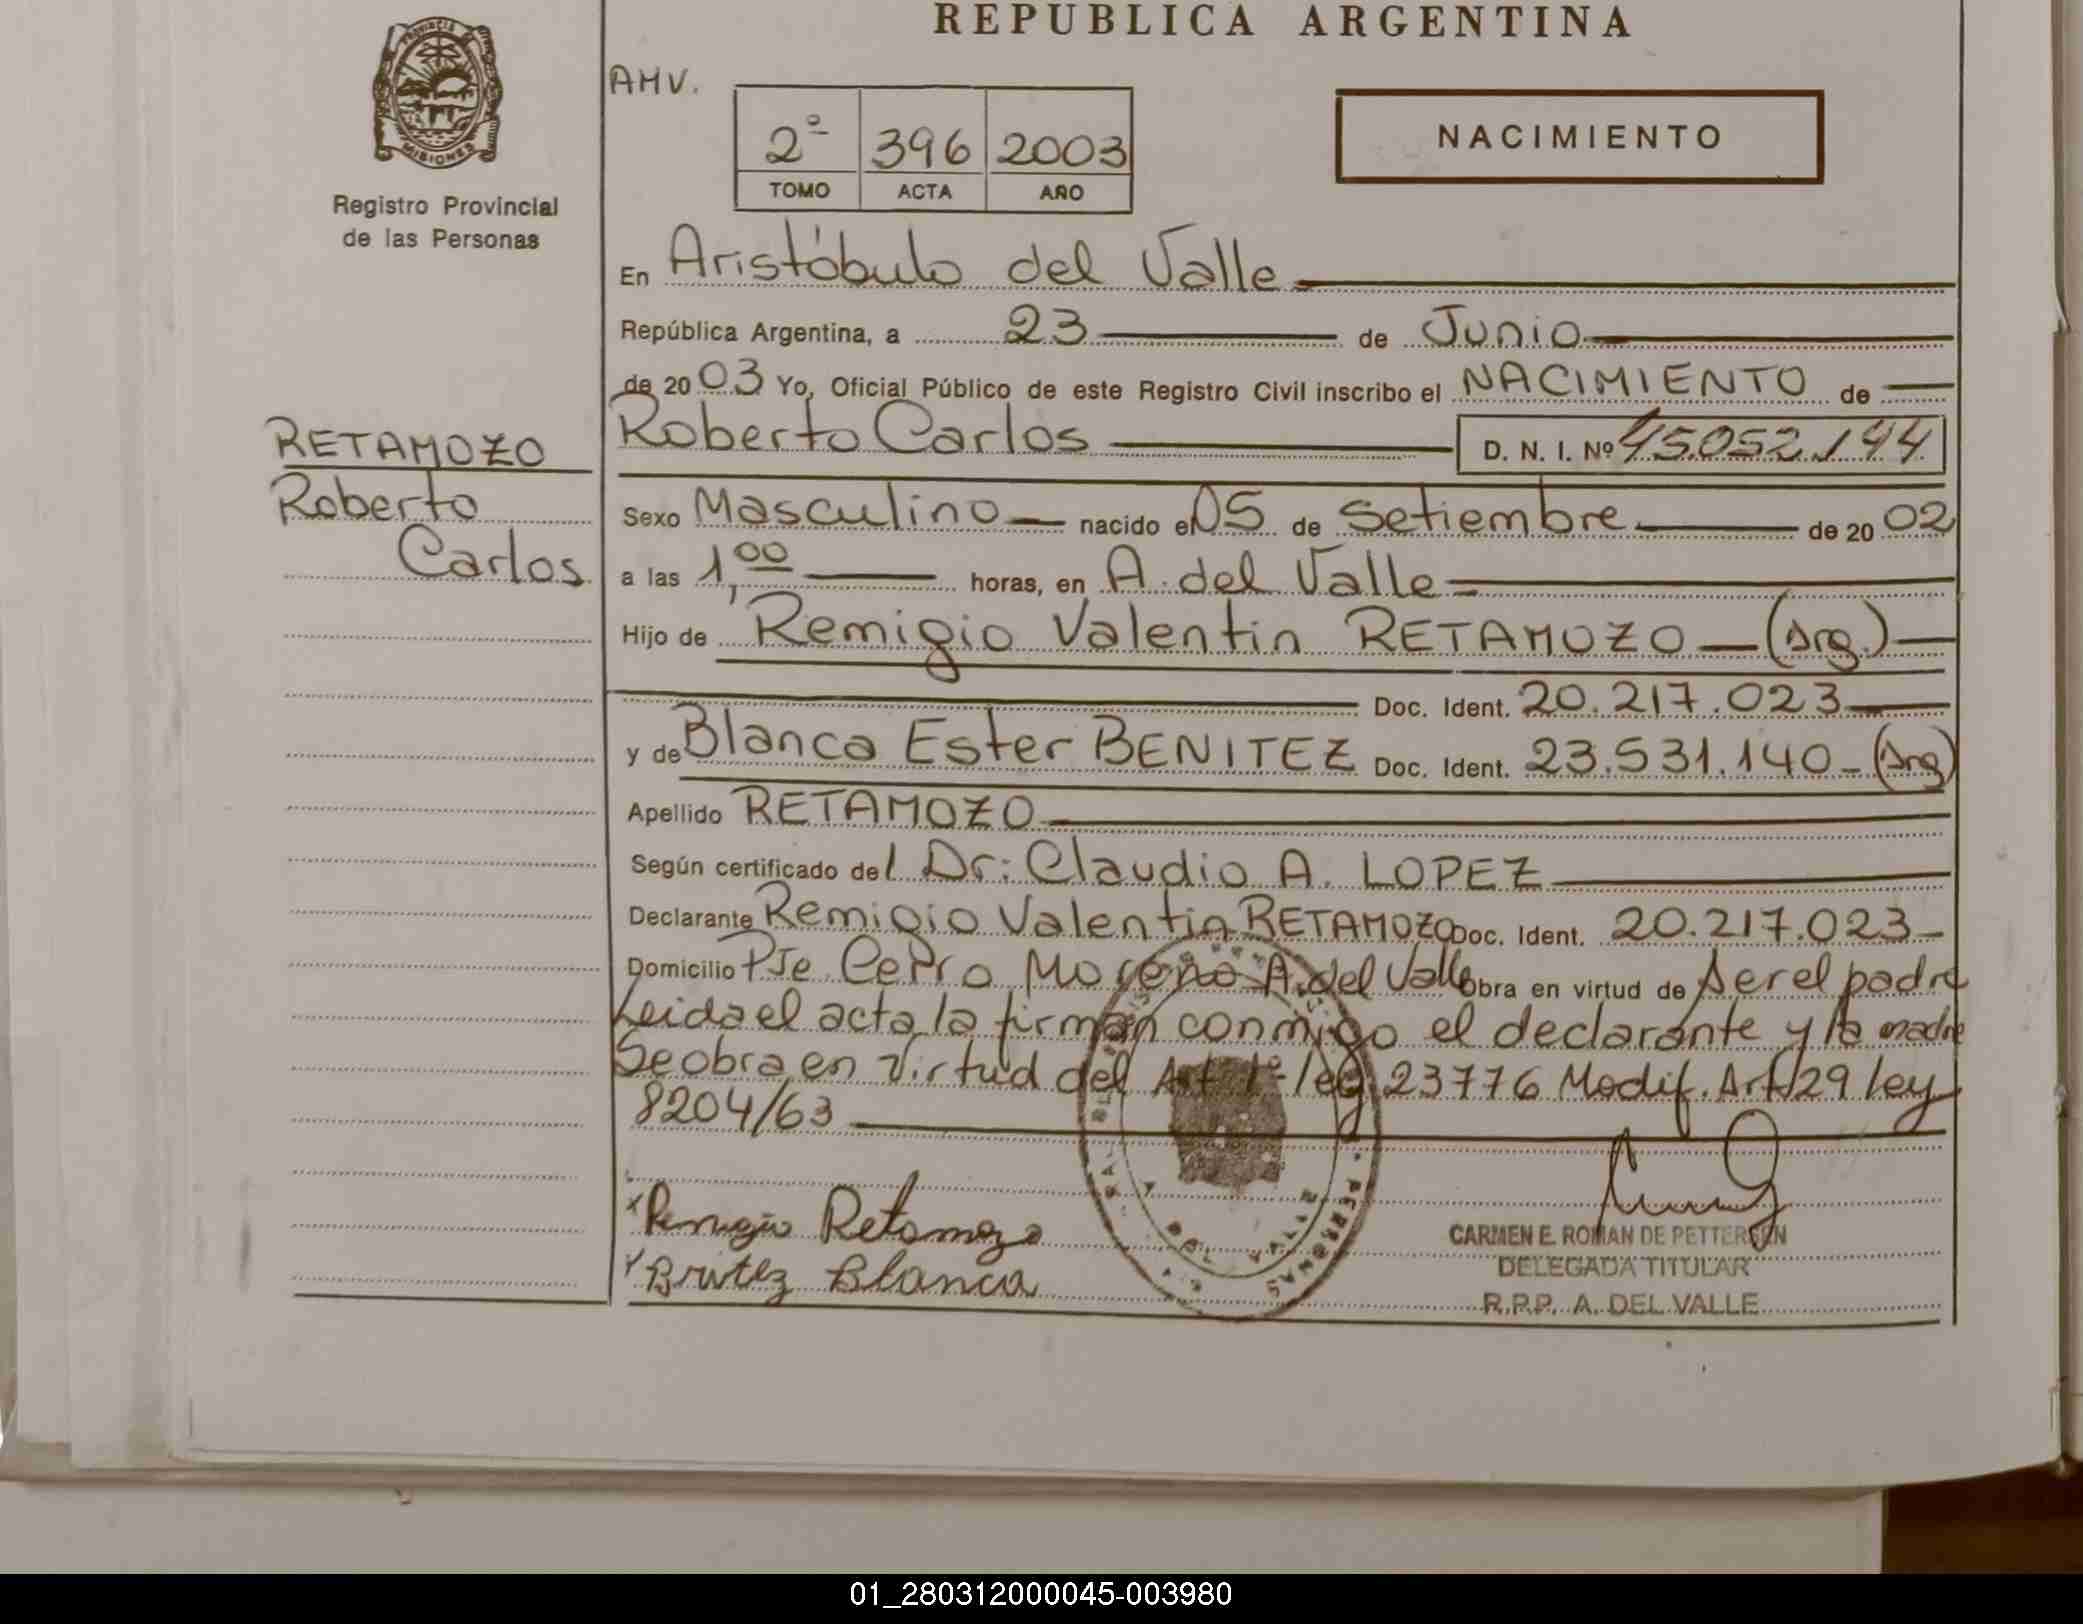 REPUBLICA ARGENTINA
PROVINCIA DE
MISIONES
Registro Provincial
de las Personas
AMV.
2º 396 2003
TOMO ACTA AÑO
NACIMIENTO
En Aristóbulo del Valle
República Argentina, a 23 de Junio
de 2003 Yo, Oficial Público de este Registro Civil inscribo el NACIMIENTO de
RETAMOZO
Roberto
Carlos
Roberto Carlos D. N. I. Nº 45.052.144
Sexo Masculino nacido el 05 de Setiembre de 2002
a las 1,00 horas, en A. del Valle
Hijo de Remigio Valentin RETAMOZO (Arg.)
Doc. Ident. 20.217.023
y de Blanca Ester BENITEZ Doc. Ident. 23.531.140 (Arg)
Apellido RETAMOZO
Según certificado del Dr: Claudio A. LOPEZ
Declarante Remigio Valentin RETAMOZO Doc. Ident. 20.217.023
Domicilio Pje Cerro Moreno A. del Valle Obra en virtud de ser el padre
Leida el acta la firman conmigo el declarante y la madre
Se obra en virtud del Art 1º ley 23776 Modif. Art 29 ley
8204/63
Remigio Retamozo
Blanca
CARMEN E. ROMAN DE PETTERSEN
DELEGADA TITULAR
R.P.P. A. DEL VALLE
PERSONAS
DEL VALLE
01_280312000045-003980